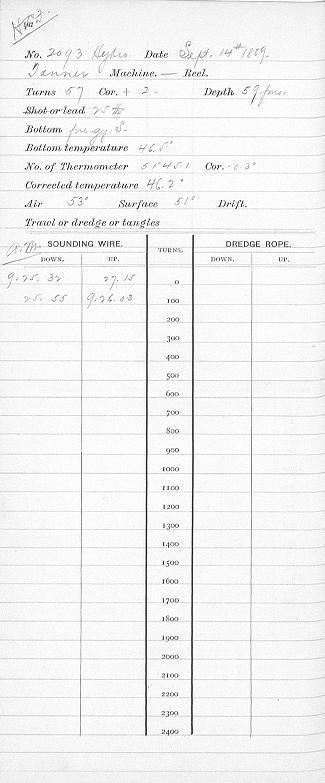 No. 2093 Hydro. Date Sept. 14th 1889.
Tanner Machine. — Reel.
Turns 57 Cor. + 2. Depth 59 fms.
Shot or lead 25 lb
Bottom fne. gy. S.
Bottom temperature 46.5°
No. of Thermometer 51451 Cor. -0.3°
Corrected temperature 46.2°
Air 53° Surface 51° Drift.
Trawl or dredge or tangles
a.m. SOUNDING WIRE. TURNS. DREDGE ROPE.
DOWN. UP. DOWN. UP.
9.25.32 27.15 0
25.55 9.26.03 100
200
300
400
500
600
700
800
900
1000
1100
1200
1300
1400
1500
1600
1700
1800
1900
2000
2100
2200
2300
2400